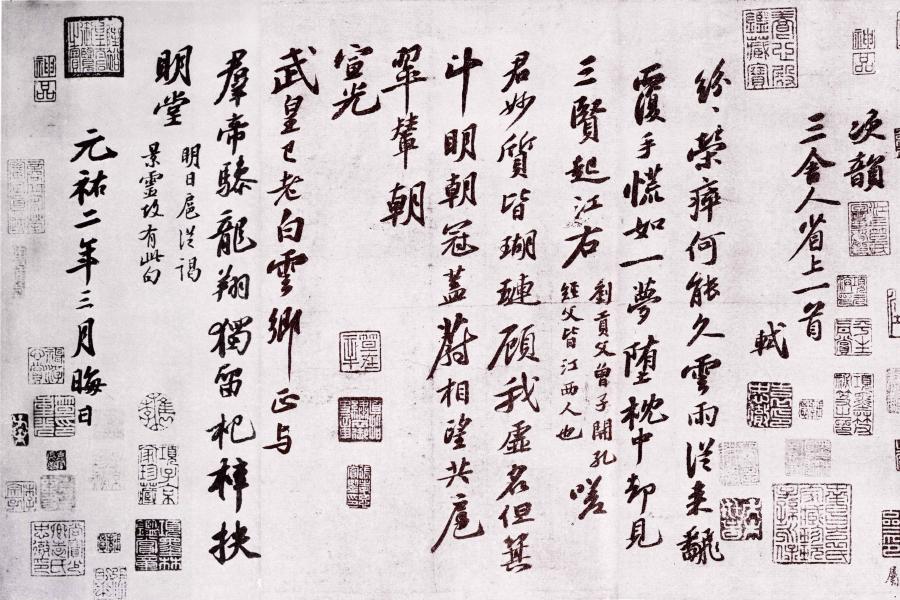 神品
次韻
三舍人省上一首
軾
紛〻榮瘁何能久雲雨從來翻
覆手慌如一夢墮枕中却見
三賢起江右
劉貢父曾子開孔
經父皆江西人也
嗟
君妙質皆瑚璉顧我虛名但箕
斗明朝冠蓋蔚相望共扈
翠輦朝
宣光
武皇已老白雲鄉正与
羣帝驂龍翔獨留杞梓扶
明堂
明日扈從謁
景靈故有此句
元祐二年三月晦日
項子京家珍藏
神品